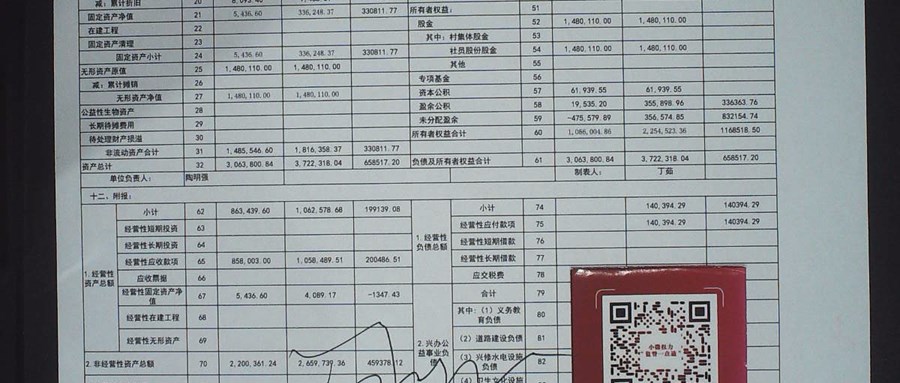 减：累计折旧 20
固定资产净值 21 5,436.60 336,248.37 330811.77 所有者权益： 51
在建工程 22 股金 52 1,480,110.00 1,480,110.00
固定资产清理 23 其中：村集体股金 53
固定资产小计 24 5,436.60 336,248.37 330811.77 社员股份股金 54 1,480,110.00 1,480,110.00
无形资产原值 25 1,480,110.00 1,480,110.00 其他 55
减：累计摊销 26 专项基金 56
无形资产净值 27 1,480,110.00 1,480,110.00 资本公积 57 61,939.55 61,939.55
公益性生物资产 28 盈余公积 58 19,535.20 355,898.96 336363.76
长期待摊费用 29 未分配盈余 59 -475,579.89 356,574.85 832154.74
待处理财产损溢 30 所有者权益合计 60 1,086,004.86 2,254,523.36 1168518.50
非流动资产合计 31 1,485,546.60 1,816,358.37 330811.77
资产总计 32 3,063,800.84 3,722,318.04 658517.20 负债及所有者权益合计 61 3,063,800.84 3,722,318.04 658517.20
单位负责人： 陶明强 制表人： 丁茹
十二、附报：
小计 62 863,439.60 1,062,578.68 199139.08 小计 74 140,394.29 140394.29
经营性短期投资 63 经营性应付款项 75 140,394.29 140394.29
经营性长期投资 64 1.经营性负债总额 经营性短期借款 76
1.经营性资产总额 经营性应收款项 65 858,003.00 1,058,489.51 200486.51 经营性长期借款 77
应收票据 66 应交税费 78
经营性固定资产净值 67 5,436.60 4,089.17 -1347.43 合计 79
经营性在建工程 68 其中：（1）义务教育负债 80
经营性无形资产 69 2.兴办公益事业负债 （2）道路建设负债 81
2.非经营性资产总额 70 2,200,361.24 2,659,739.36 459378.12 （3）兴修水电设施负债 82
（4）卫生文化设施
小微权力
监督一点通